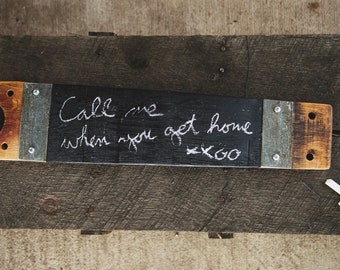 Call me
when you get home
xxoo